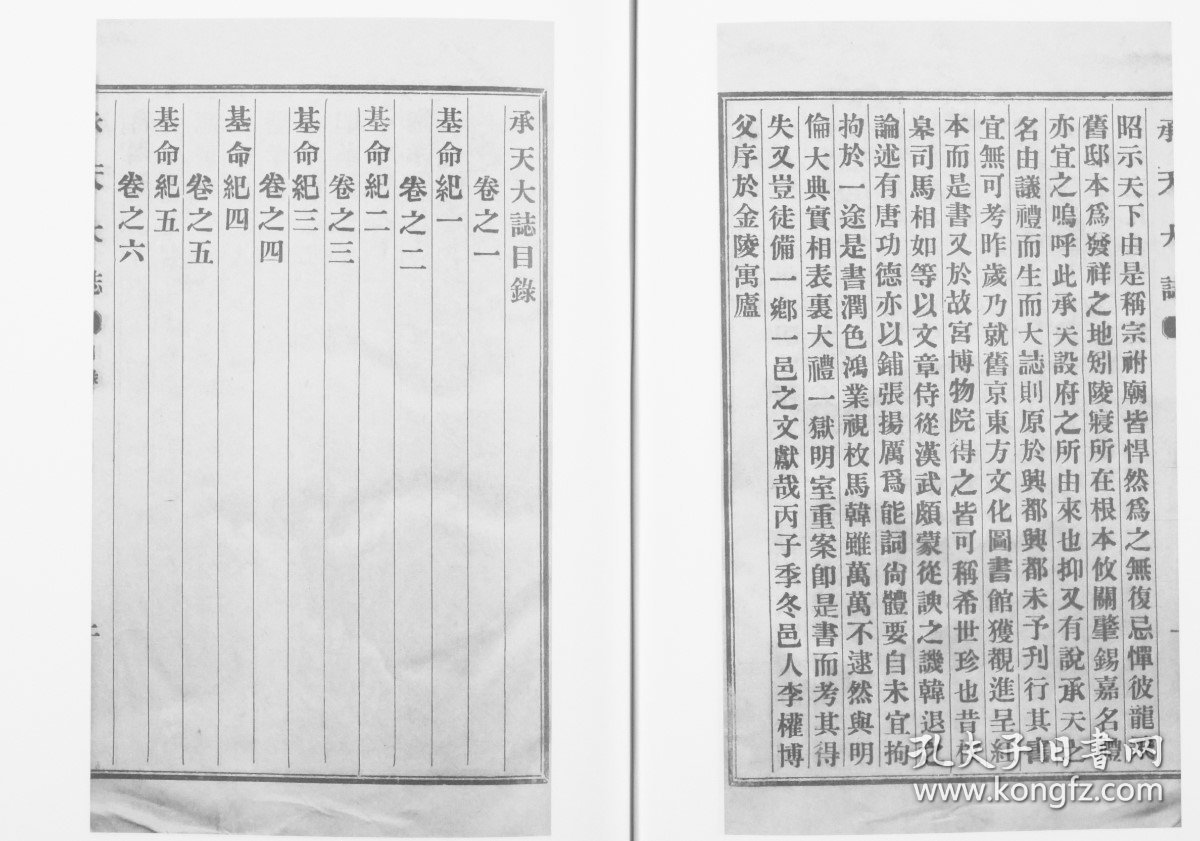 承天大誌
昭示天下由是稱宗祔廟皆悍然爲之無復忌憚彼龍
舊邸本爲發祥之地矧陵寢所在根本攸關肇錫嘉名禮
亦宜之嗚呼此承天設府之所由來也抑又有說承天之
名由議禮而生而大誌則原於興都興都未予刋行其書
宜無可考昨歲乃就舊京東方文化圖書館獲觀進呈
本而是書又於故宮博物院得之皆可稱希世珍也昔枚
臯司馬相如等以文章侍從漢武頗蒙從諛之譏韓退之
論述有唐功德亦以鋪張揚厲爲能詞尙體要自未宜拘
拘於一途是書潤色鴻業視枚馬韓雖萬萬不逮然與明
倫大典實相表裏大禮一獄明室重案卽是書而考其得
失又豈徒備一鄕一邑之文獻哉丙子季冬邑人李權博
父序於金陵寓廬
承天大誌目錄
卷之一
基命紀一
卷之二
基命紀二
卷之三
基命紀三
卷之四
基命紀四
卷之五
基命紀五
卷之六
承天大誌
目錄
孔夫子旧书网
www.kongfz.com